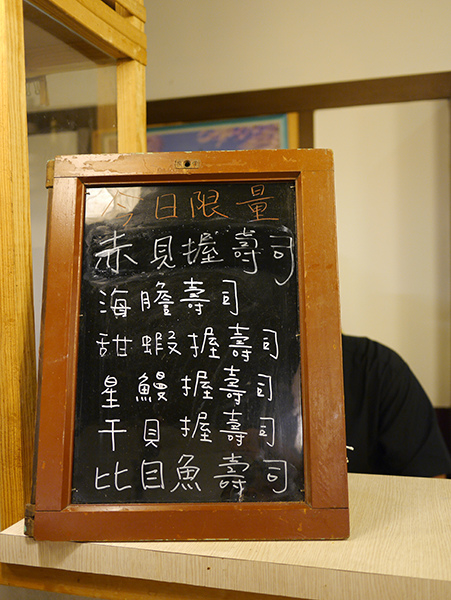 今日限量
赤貝握壽司
海膽壽司
甜蝦握壽司
星鰻握壽司
干貝握壽司
比目魚壽司